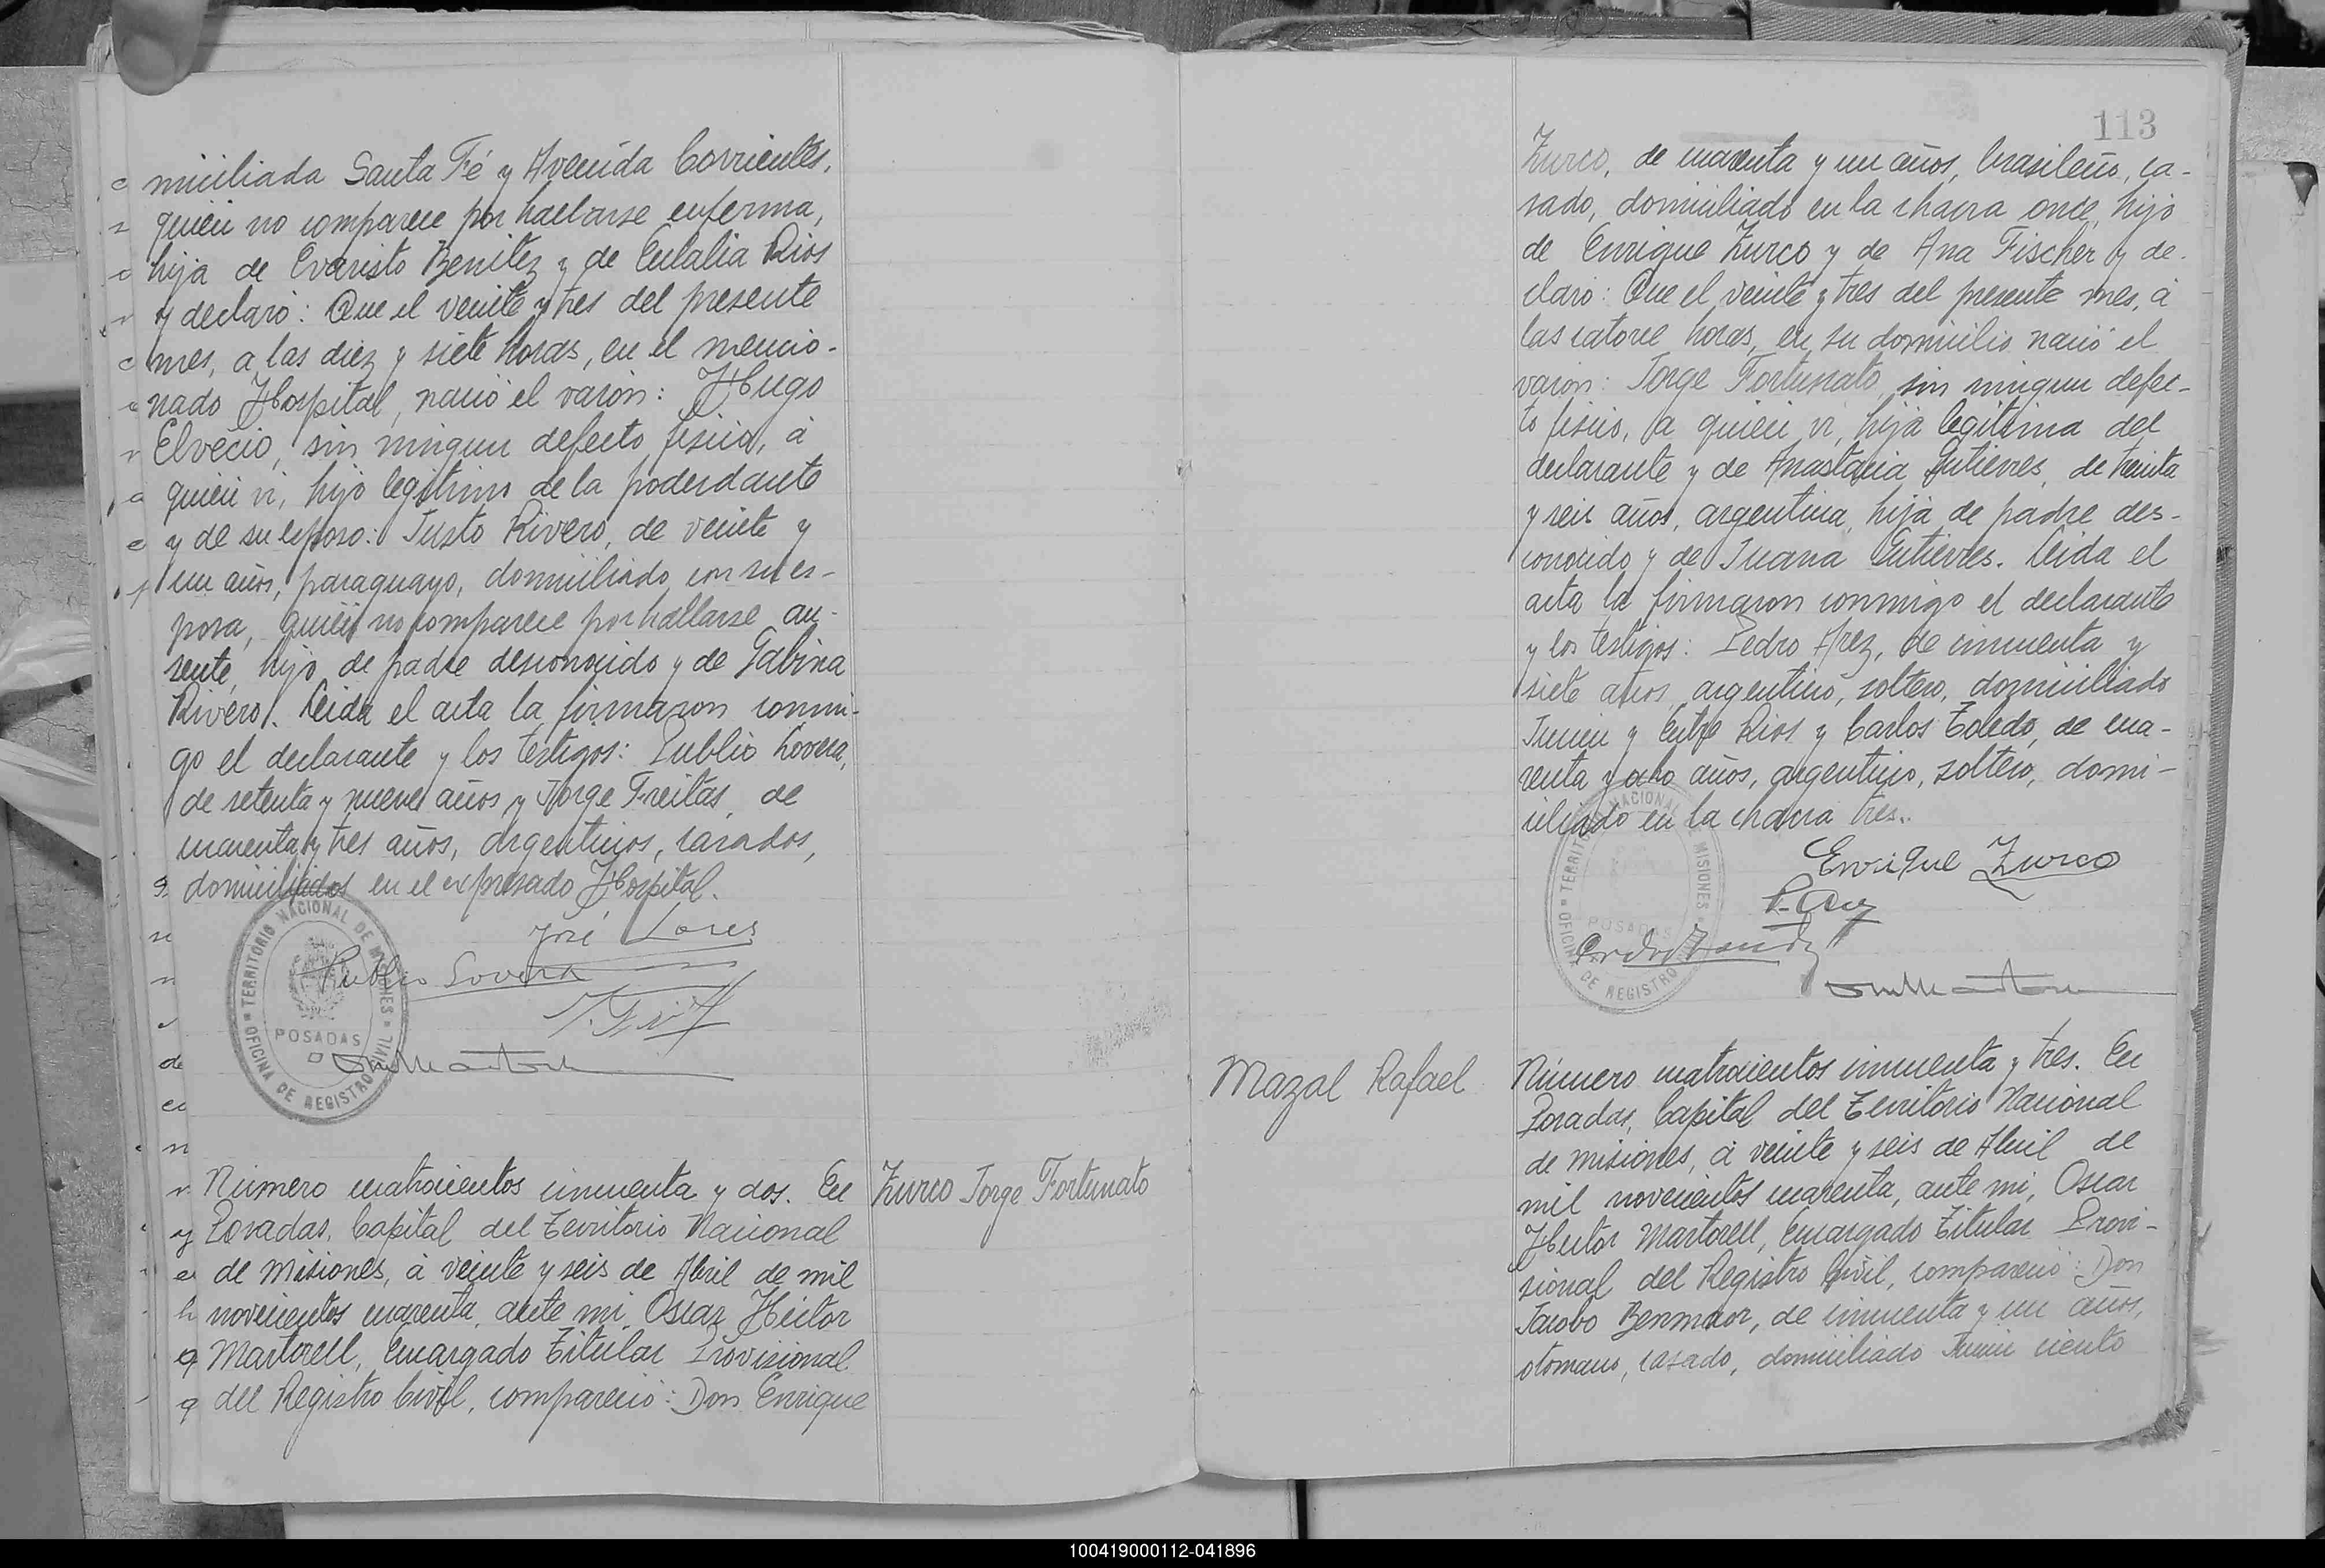 miciliada Santa Fé y Avenida Corrientes,
quien no comparece por hallarse enferma,
hija de Evaristo Benitez y de Eulalia Rios
y declaró: Que el veinte y tres del presente
mes, a las diez y siete horas, en el mencio-
nado Hospital, nació el varón: Hugo
Elvecio, sin ningun defecto fisico, á
quien vi, hijo legitimo de la poderdante
y de su esposo: Justo Rivero, de veinte y
un años, paraguayo, domiciliado con su es-
posa, quien no comparece por hallarse au-
sente, hijo de padre desconocido y de Gabina
Rivero. Leida el acta la firmaron conmi-
go el declarante y los testigos: Publio Lovera,
de setenta y nueve años y Jorge Freitas, de
cuarenta y tres años, argentinos, casados,
domiciliados en el expresado Hospital.
José Lares
Publio Lovera
TERRITORIO NACIONAL DE MISIONES
POSADAS
OFICINA DE REGISTRO CIVIL
Número cuatrocientos cincuenta y dos. En
Posadas, Capital del Territorio Nacional
de Misiones, á veinte y seis de Abril de mil
novecientos cuarenta, ante mi, Oscar Héctor
Martorell, Encargado Titular Provisional
del Registro Civil, compareció: Don Enrique
Zurco Jorge Fortunato
113
Zurco, de cuarenta y un años, brasileño, ca-
sado, domiciliado en la chacra once, hijo
de Enrique Zurco y de Ana Fischer y de-
claró: Que el veinte y tres del presente mes, á
las catorce horas, en su domicilio nació el
varón: Jorge Fortunato, sin ningun defec-
to fisico, a quien vi, hija legitima del
declarante y de Anastacia Gutierres, de treinta
y seis años, argentina, hija de padre des-
conocido y de Juana Gutierres. Leida el
acta la firmaron conmigo el declarante
y los testigos: Pedro Arez, de cincuenta y
siete años, argentino, soltero, domiciliado
Junin y Entre Rios y Carlos Toledo, de cua-
renta y ocho años, argentino, soltero, domi-
ciliado en la chacra tres.
Enrique Zurco
TERRITORIO NACIONAL DE MISIONES
POSADAS
OFICINA DE REGISTRO
Mazal Rafael
Número cuatrocientos cincuenta y tres. En
Posadas, Capital del Territorio Nacional
de Misiones, á veinte y seis de Abril de
mil novecientos cuarenta, ante mi, Oscar
Héctor Martorell, Encargado Titular Provi-
sional del Registro Civil, compareció: Don
Jacobo Benmaor, de cincuenta y un años,
otomano, casado, domiciliado Junin ciento
100419000112-041896